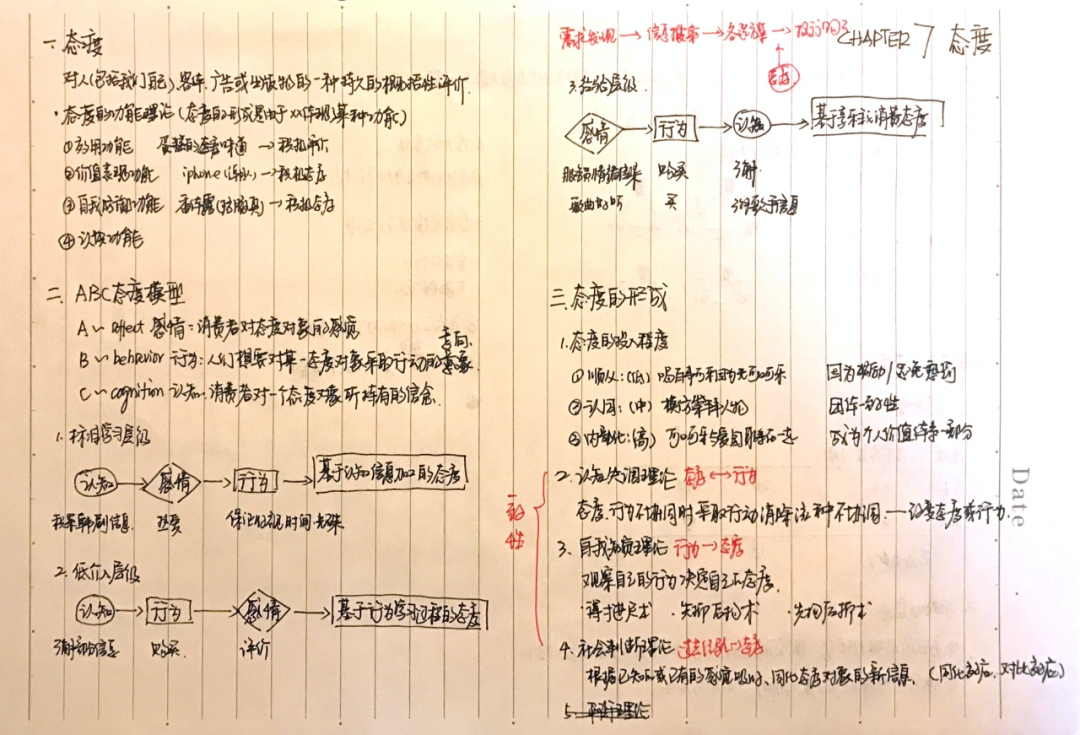 需求发现 → 信息搜索 → 备选方案 → 购买
CHAPTER 7 态度
态度
一、态度
对人(包括我们自己)、客体、广告或论题的一种持久的概括性评价.
·态度的功能理论(态度的形成是由于XX体现某种功能)
①效用功能 → 积极评价
②价值表现功能 iphone → 积极态度
③自我防御功能 → 积极态度
④认知功能
二. ABC态度模型
A ~ affect 感情:消费者对态度对象的感觉
B ~ behavior 行为:人们想要对某一态度对象采取行动的意向.
C ~ cognition 认知:消费者对一个态度对象所持有的信念.
1. 标准学习层级
认知 → 感情 → 行为 → 基于认知信息加工的态度
韩剧信息. 热爱 保证 时间
2. 低介入层级
认知 → 行为 → 感情 → 基于行为学习过程的态度
购买. 评价
3. 经验层级.
感情 → 行为 → 认知 → 基于享乐消费态度
购买 了解
歌曲好听 买 了解歌手信息
三. 态度的形成
1. 态度的投入程度
①顺从:(低) 喝百事可乐因为无可口可乐 因为奖励/避免惩罚
②认同:(中) 模仿 团体一致性
③内化:(高) 可口可乐与爱国联系在一起 成为个人价值体系一部分
一致性
2. 认知失调理论 态度 ↔ 行为
态度、行为不协同时采取行动消除这种不协调.——改变态度或行为.
3. 自我知觉理论 行为 → 态度
观察自己的行为决定自己态度.
·得寸进尺术 ·先 术 ·先 术
4. 社会判断理论 态度
根据已知的或已有的感觉吸收、同化态度对象的新信息. (同化效应、对比效应)
5. 平衡理论
Date